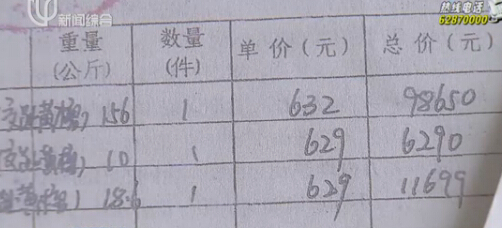 新闻综合
热线电话
52970000
重量 数量 单价(元) 总价(元)
(公斤) (件)
黄 156 1 632 98650
黄 10 1 629 6290
黄 18.6 1 629 11699